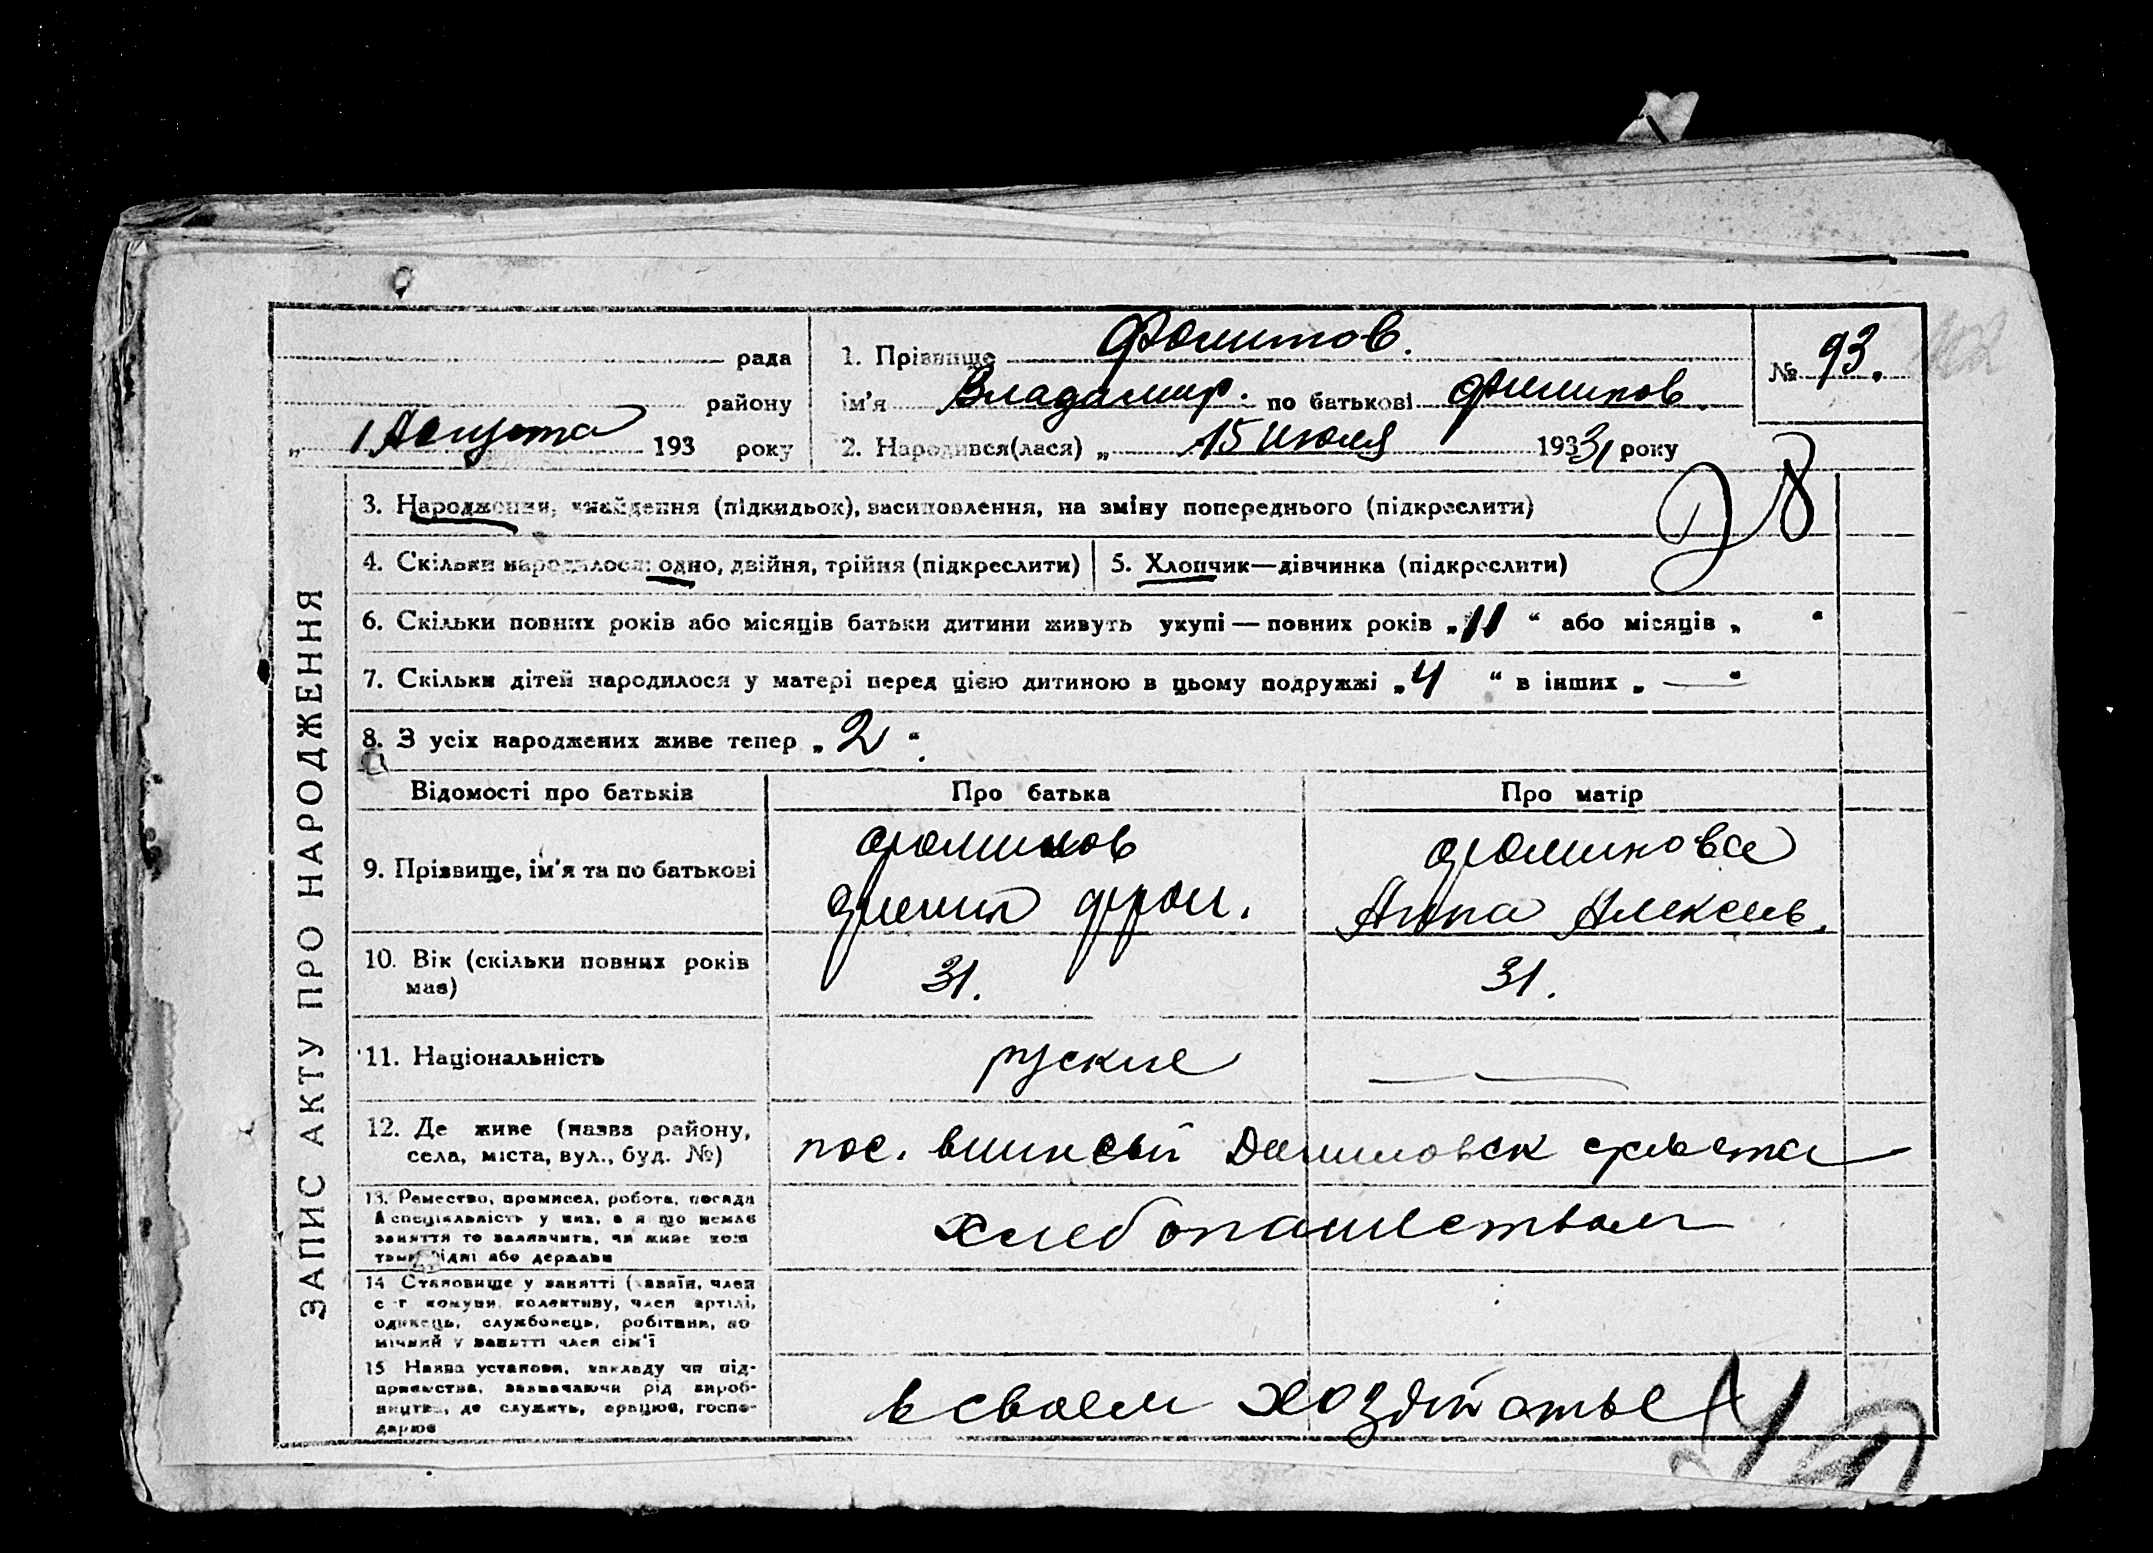 рада
районну
1 Августа 193 року
1. Прізвище Фомитов.
ім'я Владимир. по батькові Филипов.
2. Народився(лася) „ 15 июля 1931 року
№ 93.
28
ЗАПИС АКТУ ПРО НАРОДЖЕННЯ
3. Народження, знайдення (підкидьок), васиновлення, на зміну попереднього (підкреслити)
4. Скільки народилося: одно, двійня, трійня (підкреслити)
5. Хлопчик—дівчинка (підкреслити)
6. Скільки повних років або місяців батьки дитини живуть укупі — повних років „11“ або місяців „ “
7. Скільки дітей народилося у матері перед цією дитиною в цьому подружжі „4 “ в інших „ — “
8. З усіх народжених живе тепер „ 2 “.
Відомості про батьків Про батька Про матір
9. Прізвище, ім'я та по батькові
Фомиков
Филип
Фомикова
Анна Алексеев.
10. Вік (скільки повних років має)
31.
31.
11. Національність
руские
12. Де живе (назва району,
села, міста, вул., буд. №)
пос.
13. Ремество, промисел, робота, посада
й спеціяльність у них, а якщо немає
заняття то зазначити, чи живе кош
тами рідні або держави
хлебопашеством
14 Становище у занятті (хазяїн, член
с г комуни, колективу, член артілі,
одинець, службовець, робітник, по
мічний у занятті член сім'ї
15 Назва установи, закладу чи під-
приємства, зазначаючи рід вироб-
ництва, де служить, працює, госпо-
дарює
в своем хозяйстве